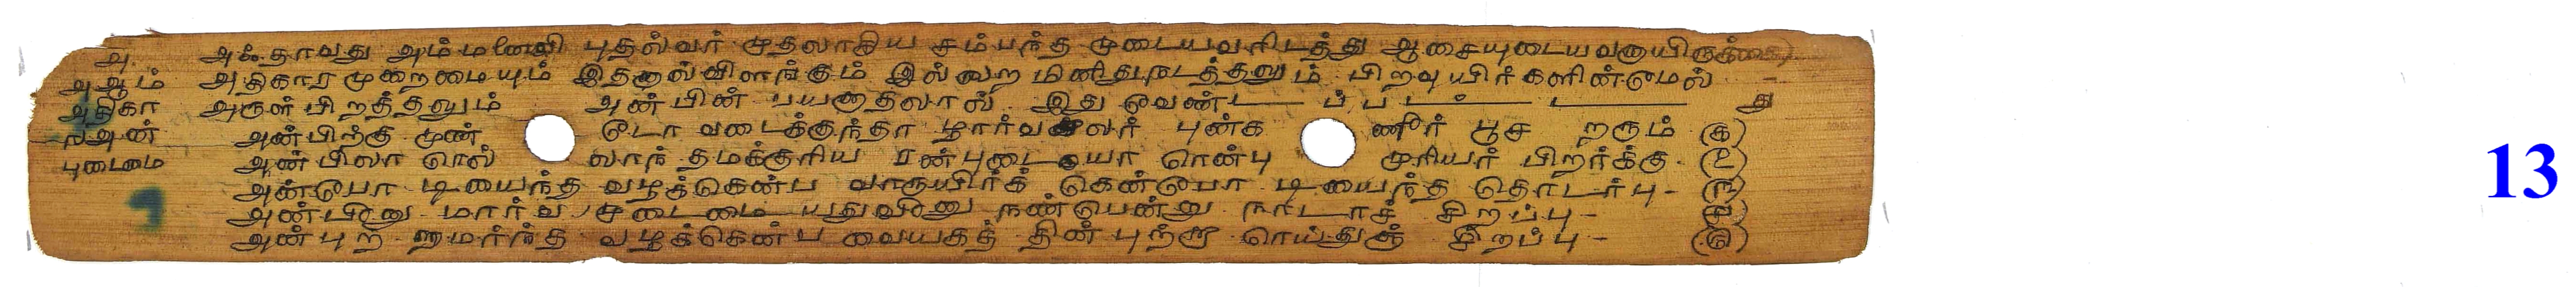 அ அஃதாவது அம்மனைவி புதல்வர் முதலாகிய சம்பந்த முடையவரிடத்து ஆசையுடையவராயிருக்கை
அஆம் அதிகார முறைமையும் இதனால்விளங்கும் இல்லற மினிதுநடத்தலும் பிறவுயிர்களின்மேல்
அதிகா அருள் பிறத்தலும் அன்பின் பயனாதலால் இது வேண்ட ப்பட்ட து
ரஅன் அன்பிற்கு முண் டோ வடைக்குந்தா ழார்வலர் புன்க ணீர் பூச றரும் (க)
புடைமை அன்பிலா ரெல் லாந் தமக்குரிய ரன்புடையா ரென்பு முரியர் பிறர்க்கு (உ)
அன்போ டியைந்த வழக்கென்ப வாருயிர்க் கென்போ டியைந்த தொடர்பு - (ங)
அன்பீனு மார்வ முடைமை யதுவீனு நண்பென்னு நாடாச் சிறப்பு - (ச)
அன்புற் றமர்ந்த வழக்கென்ப வையகத் தின்புற்றா ரெய்துஞ் சிறப்பு - (ரு)
13